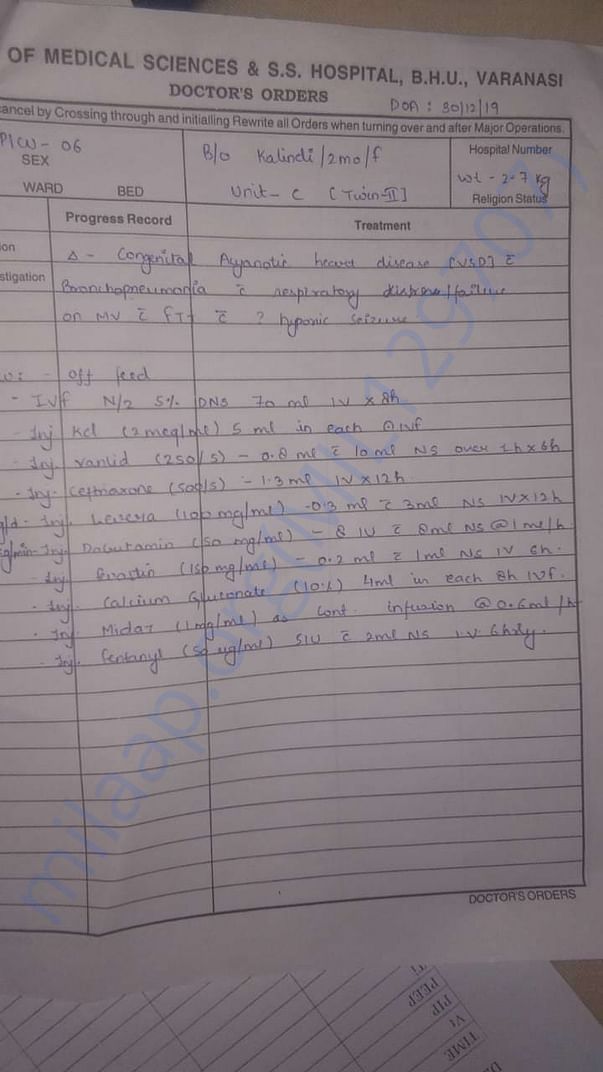 OF MEDICAL SCIENCES & S.S. HOSPITAL, B.H.U., VARANASI
DOCTOR'S ORDERS
DOA : 30/12/19
ancel by Crossing through and initialling Rewrite all Orders when turning over and after Major Operations.
PICU - 06
SEX
WARD BED
B/o Kalindi / 2mo / f
Unit - C [Twin-II]
Hospital Number
wt - 2.7 kg
Religion Status
Progress Record Treatment
ion
stigation
Δ - Congenital Acyanotic heart disease [VSD] c̄
Bronchopneumonia c̄ respiratory distress/failure
on MV c̄ c̄ ? hypoxic seizure
- Off feed
- IVf N/2 5% DNS 70 ml IV x 8h
- Inj KCl (2meq/ml) 5 ml in each IVf
- Inj. Vanlid (250/5) - 0.8 ml c̄ 10 ml NS over 1h x 6h
- Inj. Ceftriaxone (500/5) - 1.3 ml IV x 12h
Inj. (100 mg/ml) - 0.3 ml c̄ 3ml NS IV x 12h
Inj. Dobutamin (50 mg/ml) - 8 IU c̄ 8ml NS @ 1 ml/h
- Inj. (150 mg/ml) - 0.2 ml c̄ 1ml NS IV 6h.
- Inj. Calcium Gluconate (10%) 4ml in each 8h IVf.
- Inj. Midaz (1mg/ml) as cont. infusion @ 0.6ml/h
- Inj. Fentanyl (50 ug/ml) 5IU c̄ 2ml NS IV 6hrly.
DOCTOR'S ORDERS
milaap.org(MIL129707)
PEEP
PIP
Vt
TIME